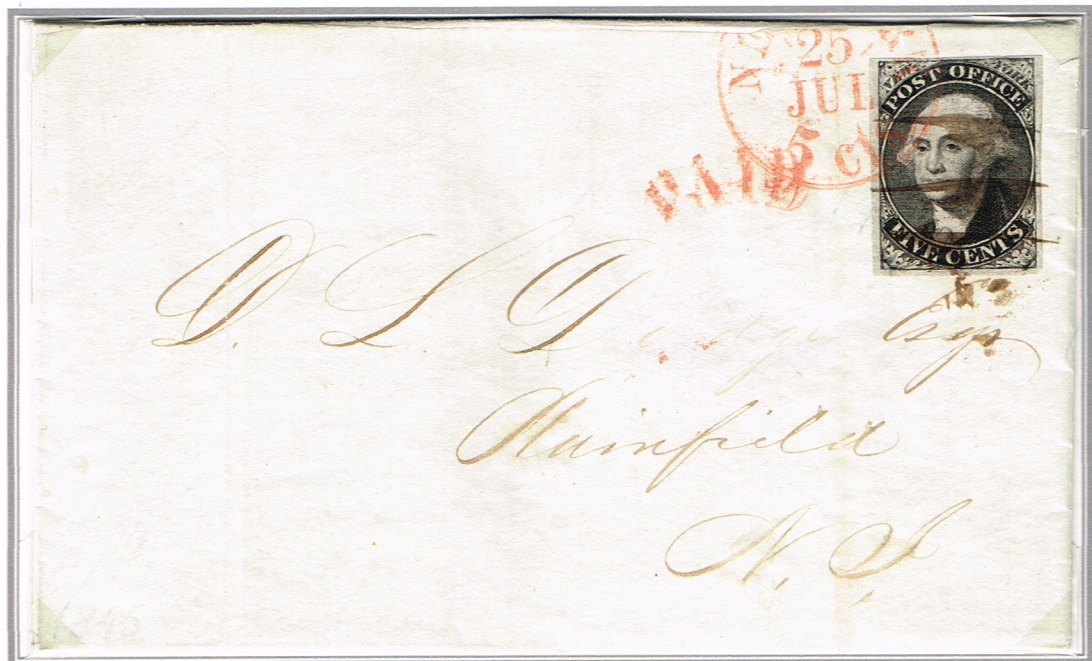 25
JUL
5 cts
PAID
POST OFFICE
FIVE CENTS
D. L. Dodge Esqr
Plainfield
N. J